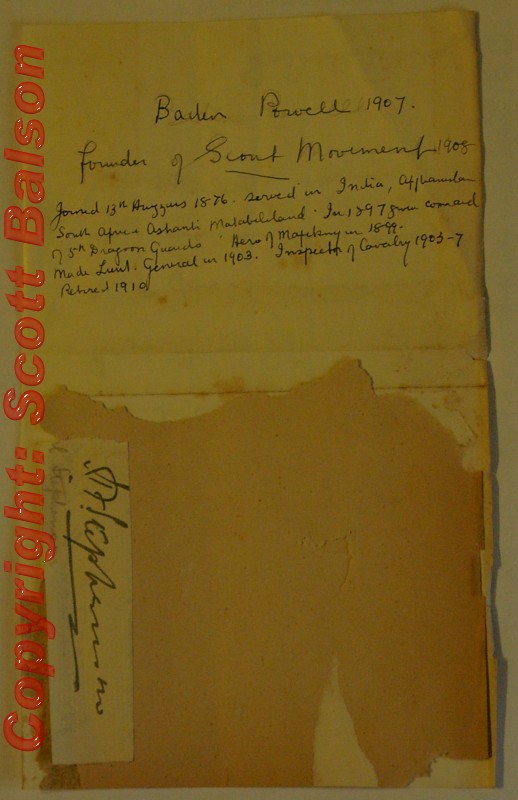 Baden Powell 1907.
Founder of Scout Movement 1908
Joined 13th Huzzars 1876. Served in India, Afghanistan
South Africa Ashanti Matabeleland. In 1897 given command
of 5th Dragoon Guards. Hero of Mafeking in 1899.
Made Lieut. General in 1903. Inspector of Cavalry 1903-7
Retired 1910
Stephenson
Copyright: Scott Balson